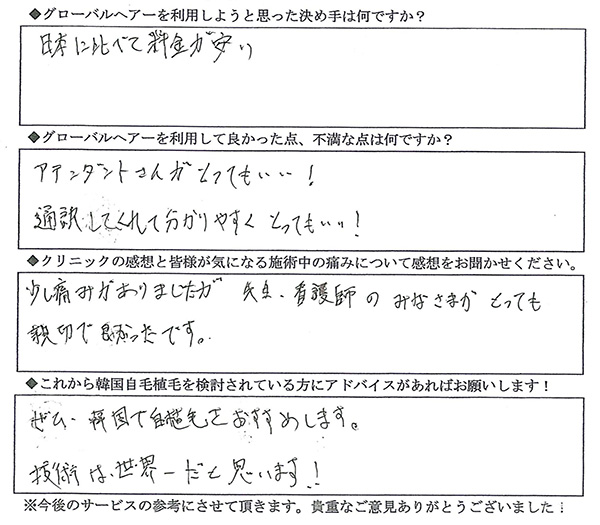 ◆グローバルヘアーを利用しようと思った決め手は何ですか?
日本に比べて料金が安い
◆グローバルヘアーを利用して良かった点、不満な点は何ですか?
アテンダントさんがとってもいい!
通訳してくれて分かりやすくとってもいい!
◆クリニックの感想と皆様が気になる施術中の痛みについて感想をお聞かせください。
少し痛みがありましたが 先生、看護師のみなさまがとっても
親切で良かったです。
◆これから韓国自毛植毛を検討されている方にアドバイスがあればお願いします!
ぜひ、韓国で自植毛をおすすめします。
技術は、世界一だと思います!!
※今後のサービスの参考にさせて頂きます。貴重なご意見ありがとうございました!